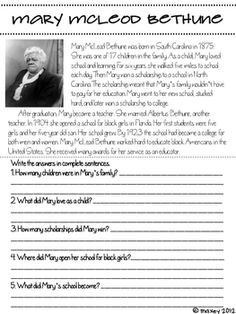 MARY MCLEOD BETHUNE
Mary McLeod Bethune was born in South Carolina in 1875.
She was one of 17 children in the family. As a child, Mary loved
school and learning. For six years, she walked five miles to school
each day. Then Mary won a scholarship to a school in North
Carolina. The scholarship meant that Mary's family wouldn't have
to pay for her education. Mary went to her new school, studied
hard, and later won a scholarship to college.
After graduation, Mary became a teacher. She married Albertus Bethune, another
teacher. In 1904, she opened a school for black girls in Florida. Her first students were five
girls and her five-year old son. Her school grew. By 1923, the school had become a college for
both men and women. Mary McLeod Bethune worked hard to educate black Americans in the
United States. She received many awards for her service as an educator.
Write the answers in complete sentences.
1. How many children were in Mary's family?
2. What did Mary love as a child?
3. How many scholarships did Mary win?
4. Where did Mary open her school for black girls?
5. What did Mary's school become?
© 2012